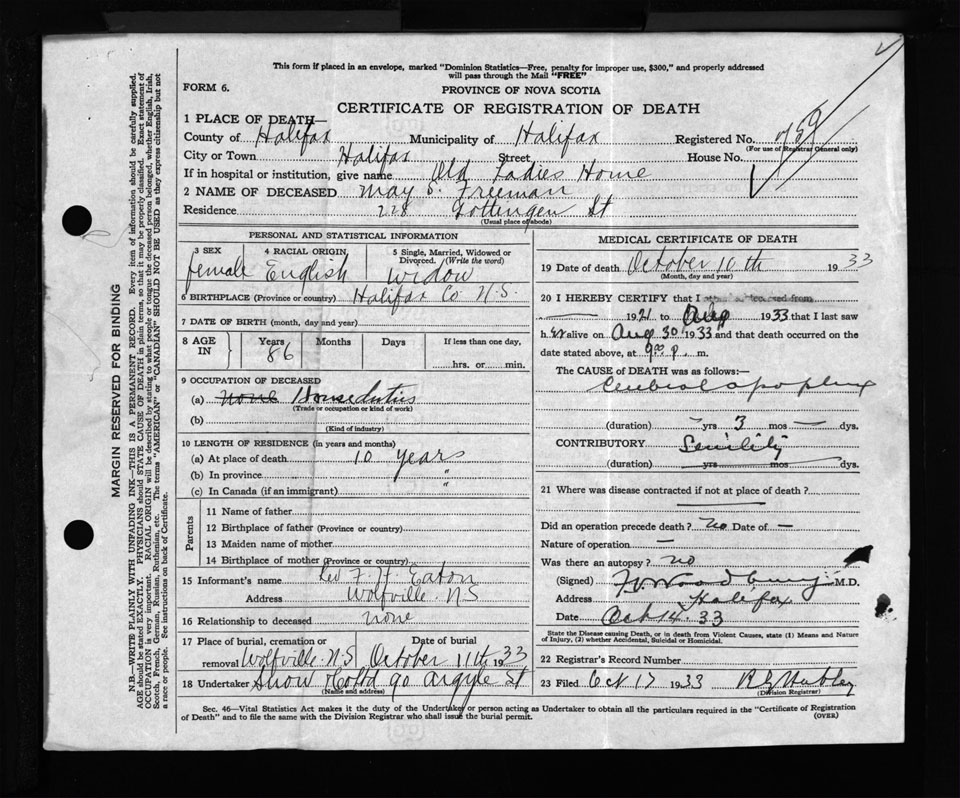 This form if placed in an envelope, marked "Dominion Statistics—Free, penalty for improper use, $300," and properly addressed
will pass through the Mail "FREE"
FORM 6.
PROVINCE OF NOVA SCOTIA
CERTIFICATE OF REGISTRATION OF DEATH
1 PLACE OF DEATH—
County of Halifax Municipality of Halifax Registered No.
(For use of Registrar General only)
City or Town Halifax Street House No.
If in hospital or institution, give name Old Ladies Home
2 NAME OF DECEASED May S. Freeman
Residence 228 Gottengen St
(Usual place of abode)
PERSONAL AND STATISTICAL INFORMATION
3 SEX 4 RACIAL ORIGIN 5 Single, Married, Widowed or
Divorced. (Write the word)
female English widow
6 BIRTHPLACE (Province or country) Halifax Co N.S.
7 DATE OF BIRTH (month, day and year)
8 AGE IN Years Months Days If less than one day,
86 hrs. or min.
9 OCCUPATION OF DECEASED
(a) none House duties
(Trade or occupation or kind of work)
(b)
(Kind of industry)
10 LENGTH OF RESIDENCE (in years and months)
(a) At place of death 10 years
(b) In province "
(c) In Canada (if an immigrant) "
Parents
11 Name of father
12 Birthplace of father (Province or country)
13 Maiden name of mother
14 Birthplace of mother (Province or country)
15 Informant's name Rev F. H. Eaton
Address Wolfville N S
16 Relationship to deceased none
17 Place of burial, cremation or Date of burial
removal Wolfville N.S October 11th 1933
18 Undertaker Snow & Co Ltd 90 Argyle St
(Name and address)
MEDICAL CERTIFICATE OF DEATH
19 Date of death October 10th 1933
(Month, day and year)
20 I HEREBY CERTIFY that I
1921 to Aug 1933 that I last saw
h er alive on Aug 30 1933 and that death occurred on the
date stated above, at 9.00 p. m.
The CAUSE OF DEATH was as follows:—
Cerebral apoplexy
(duration) — yrs 3 mos — dys.
CONTRIBUTORY Senility
(duration) yrs mos dys.
21 Where was disease contracted if not at place of death?
Did an operation precede death? no Date of —
Nature of operation —
Was there an autopsy? no
(Signed) Woodbury M.D.
Address Halifax
Date Oct 14 33
State the Disease causing Death, or in death from Violent Causes, state (1) Means and Nature
of Injury, (2) whether Accidental, Suicidal or Homicidal.
22 Registrar's Record Number
23 Filed Oct 17 1933
(Division Registrar)
Sec. 46—Vital Statistics Act makes it the duty of the Undertaker or person acting as Undertaker to obtain all the particulars required in the "Certificate of Registration
of Death" and to file the same with the Division Registrar who shall issue the burial permit.
(OVER)
MARGIN RESERVED FOR BINDING
N.B.—WRITE PLAINLY WITH UNFADING INK—THIS IS A PERMANENT RECORD. Every item of information should be carefully supplied.
AGE should be stated EXACTLY. PHYSICIANS should STATE CAUSE OF DEATH in plain terms, so that it may be properly classified. Exact statement of
OCCUPATION is very important. RACIAL ORIGIN will be described by stating to what people or tongue the deceased person belonged, whether English, Irish,
Scotch, French, German, Russian, Ruthenian, etc. The terms "AMERICAN" or "CANADIAN" SHOULD NOT BE USED as they express citizenship but not
a race or people. See instructions on back of Certificate.